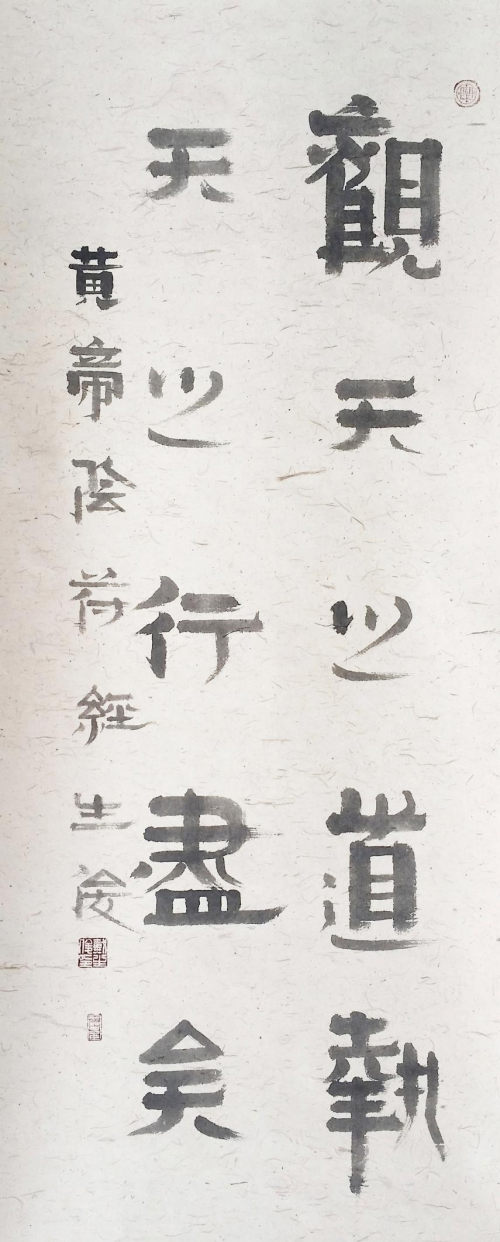 觀天之道執
天之行盡矣
黄帝陰苻經生